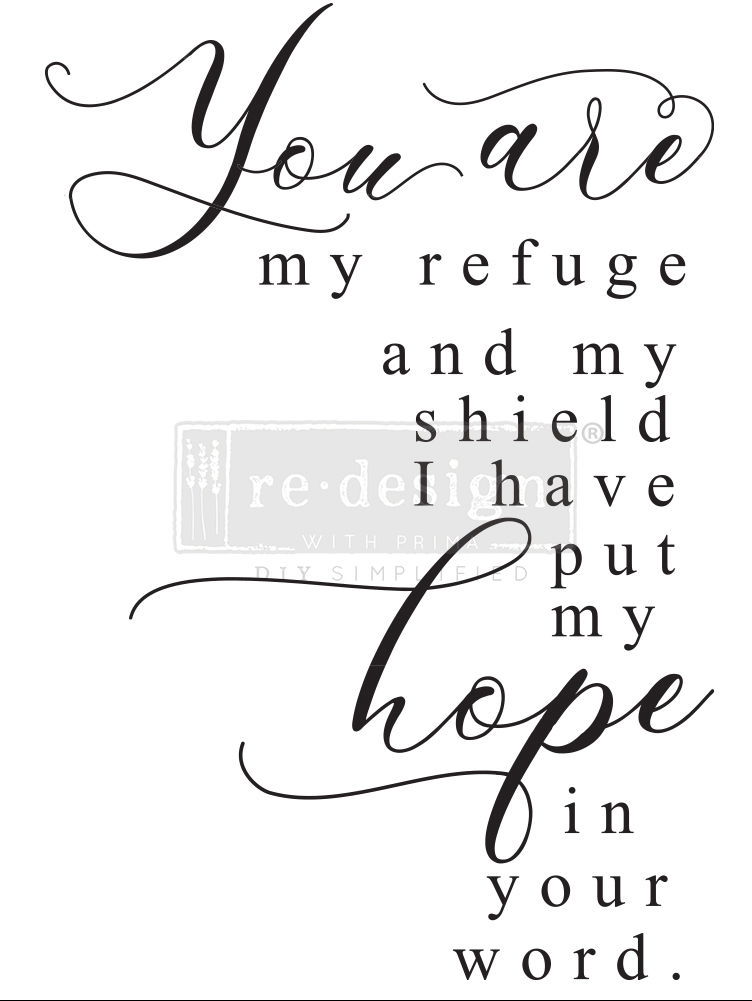 You are
my refuge
and my
shield
I have
put
my
hope
in
your
word.
re·design®
WITH PRIMA
DIY SIMPLIFIED